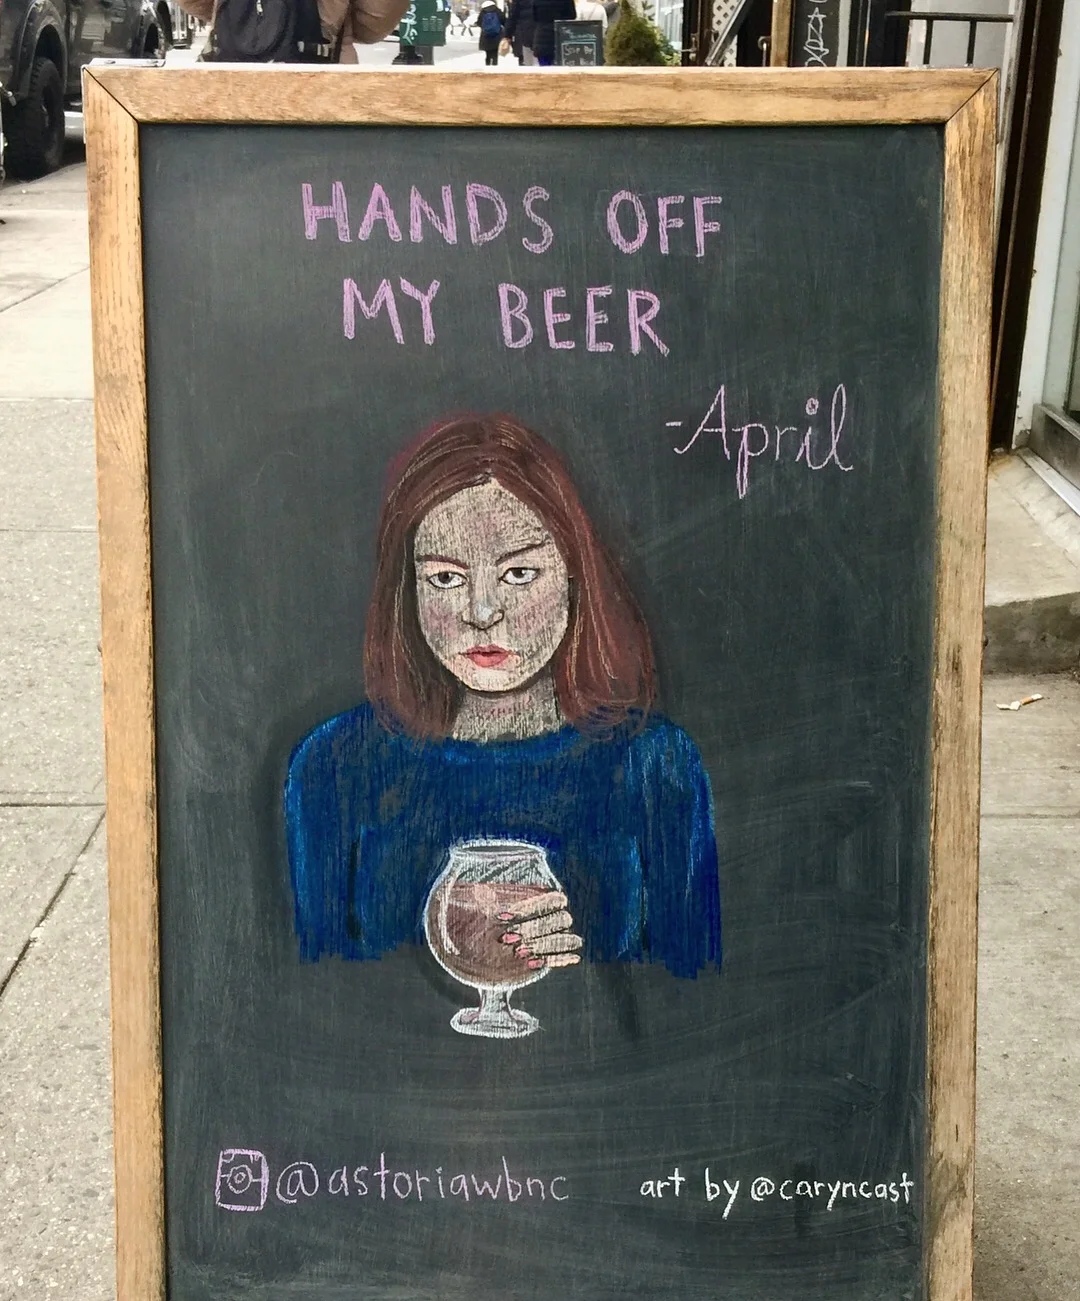 HANDS OFF
MY BEER
-April
@astoriawbnc
art by @caryncast